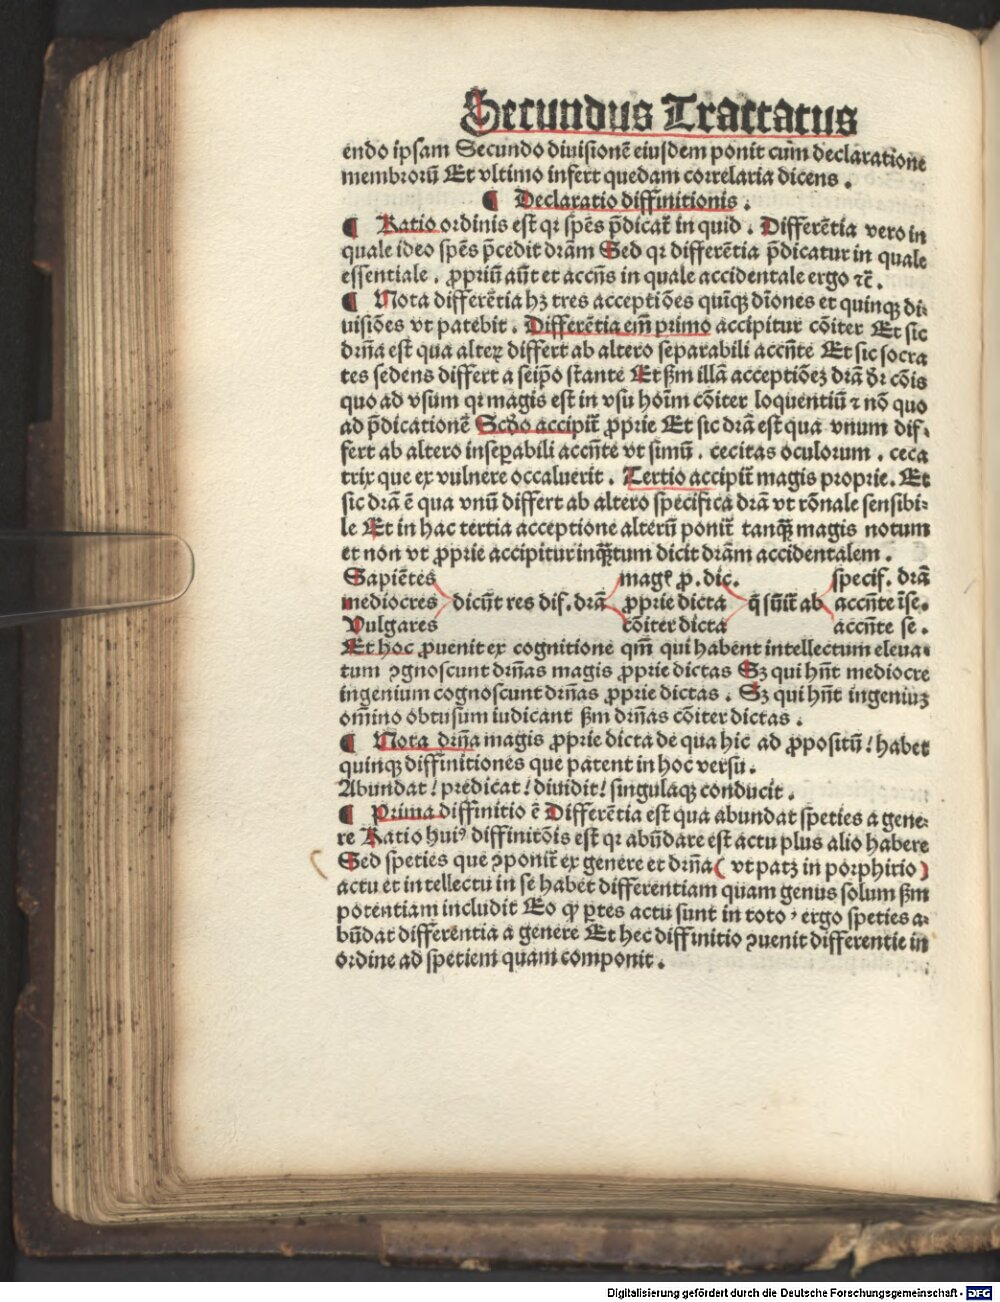 Secundus Tractatus
endo ipsam Secundo diuisionē eiusdem ponit cum declaratione
membrorū Et vltimo infert quedam correlaria dicens .
¶ Declaratio diffinitionis .
¶ Ratio ordinis est qr spēs p̄dicat̄ in quid . Differētia vero in
quale ideo spēs p̄cedit dr̄am Sed qr differētia p̄dicatur in quale
essentiale . ꝓpriū aūt et accn̄s in quale accidentale ergo ⁊c̄ .
¶ Nota differētia hꝫ tres acceptiōes quīqꝫ dīones et quinqꝫ di⸗
uisiōes vt patebit . Differētia em̄ primo accipitur cōiter Et sic
dr̄na est qua alteꝝ differt ab altero separabili accn̄te Et sic socra
tes sedens differt a seip̄o stante Et ẜm illā acceptiōeꝫ dr̄a dr̄ cōis
quo ad vsum qr magis est in vsu hoīm cōiter loquentiū ⁊ nō quo
ad p̄dicationē Scd̄o accipit̄ ꝓprie Et sic dr̄a est qua vnum dif⸗
fert ab altero inseꝑabili accn̄te vt simū . cecitas oculorum . ceca
trix que ex vulnere occaluerit . Tertio accipit̄ magis proprie . Et
sic dr̄a ē qua vnū differt ab altero specifica dr̄a vt rōnale sensibi⸗
le Et in hac tertia acceptione alterū ponit̄ tanqꝫ̄ magis notum
et non vt ꝓprie accipitur inqꝫ̄tum dicit dr̄am accidentalem .
Sapiētes maḡ ꝓ . dic . specif . dr̄a
mediocres dicūt res dif . dr̄a ꝓprie dicta q̄ sūit̄ ab accn̄te īse .
Vulgares cōiter dicta accn̄te se .
Et hoc ꝓuenit ex cognitione qm̄ qui habent intellectum eleua⸗
tum ꝯgnoscunt dr̄nas magis ꝓprie dictas Sꝫ qui hn̄t mediocre
ingenium cognoscunt dr̄nas ꝓprie dictas . Sꝫ qui hn̄t ingeniuꝫ
om̄ino obtusum iudicant ẜm dr̄nas cōiter dictas .
¶ Nota dr̄na magis ꝓprie dicta de qua hic ad ꝓpositū / habet
quinqꝫ diffinitiones que patent in hoc versu .
Abundat / predicat / diuidit / singulaqꝫ conducit .
¶ Prima diffinitio ē Differētia est qua abundat speties a gene⸗
re Ratio huiꝰ diffinitōis est qr abūdare est actu plus alio habere
Sed speties que ꝯponit̄ ex genere et dr̄na ( vt patꝫ in porphirio )
actu et in tellectu in se habet differentiam quam genus solum ẜm
potentiam includit Eo ꝙ ꝑtes actu sunt in toto , ergo speties a⸗
būdat differentia a genere Et hec diffinitio ꝯuenit differentie in
ordine ad spetiem quam componit .
Digitalisierung gefördert durch die Deutsche Forschungsgemeinschaft - DFG